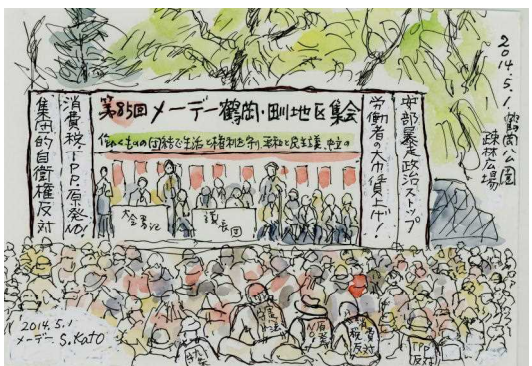 2014.5.1. 鶴岡公園
疎林広場
第85回メーデー鶴岡・田川地区集会
働くものの団結で生活と権利を守り、平和と民主主義、中立の
安部暴走政治ストップ
労働者の大巾賃上げ!
消費税・TPP・原発NO!
集団的自衛権反対
大会書記
議長団
NO
税反対
TPP
反対
2014.5.1
メーデー S.Kato